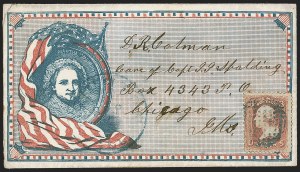 D. R. Colman
Care of Capt J. J. Spalding
Box 4343 P. O.
Chicago
Ills